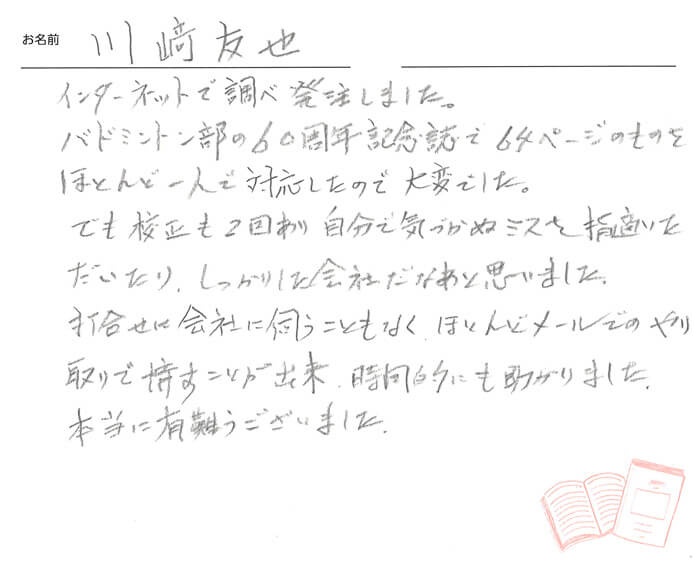 お名前 川﨑友也
インターネットで調べ発注しました。
バドミントン部の60周年記念誌で64ページのものを
ほとんど一人で対応したので大変でした。
でも校正も2回あり自分で気づかぬミスを指摘いた
だいたり、しっかりした会社だなあと思いました。
打合せは会社に伺うこともなく、ほとんどメールでのやり
取りで済すことが出来、時間的にも助かりました。
本当に有難うございました。